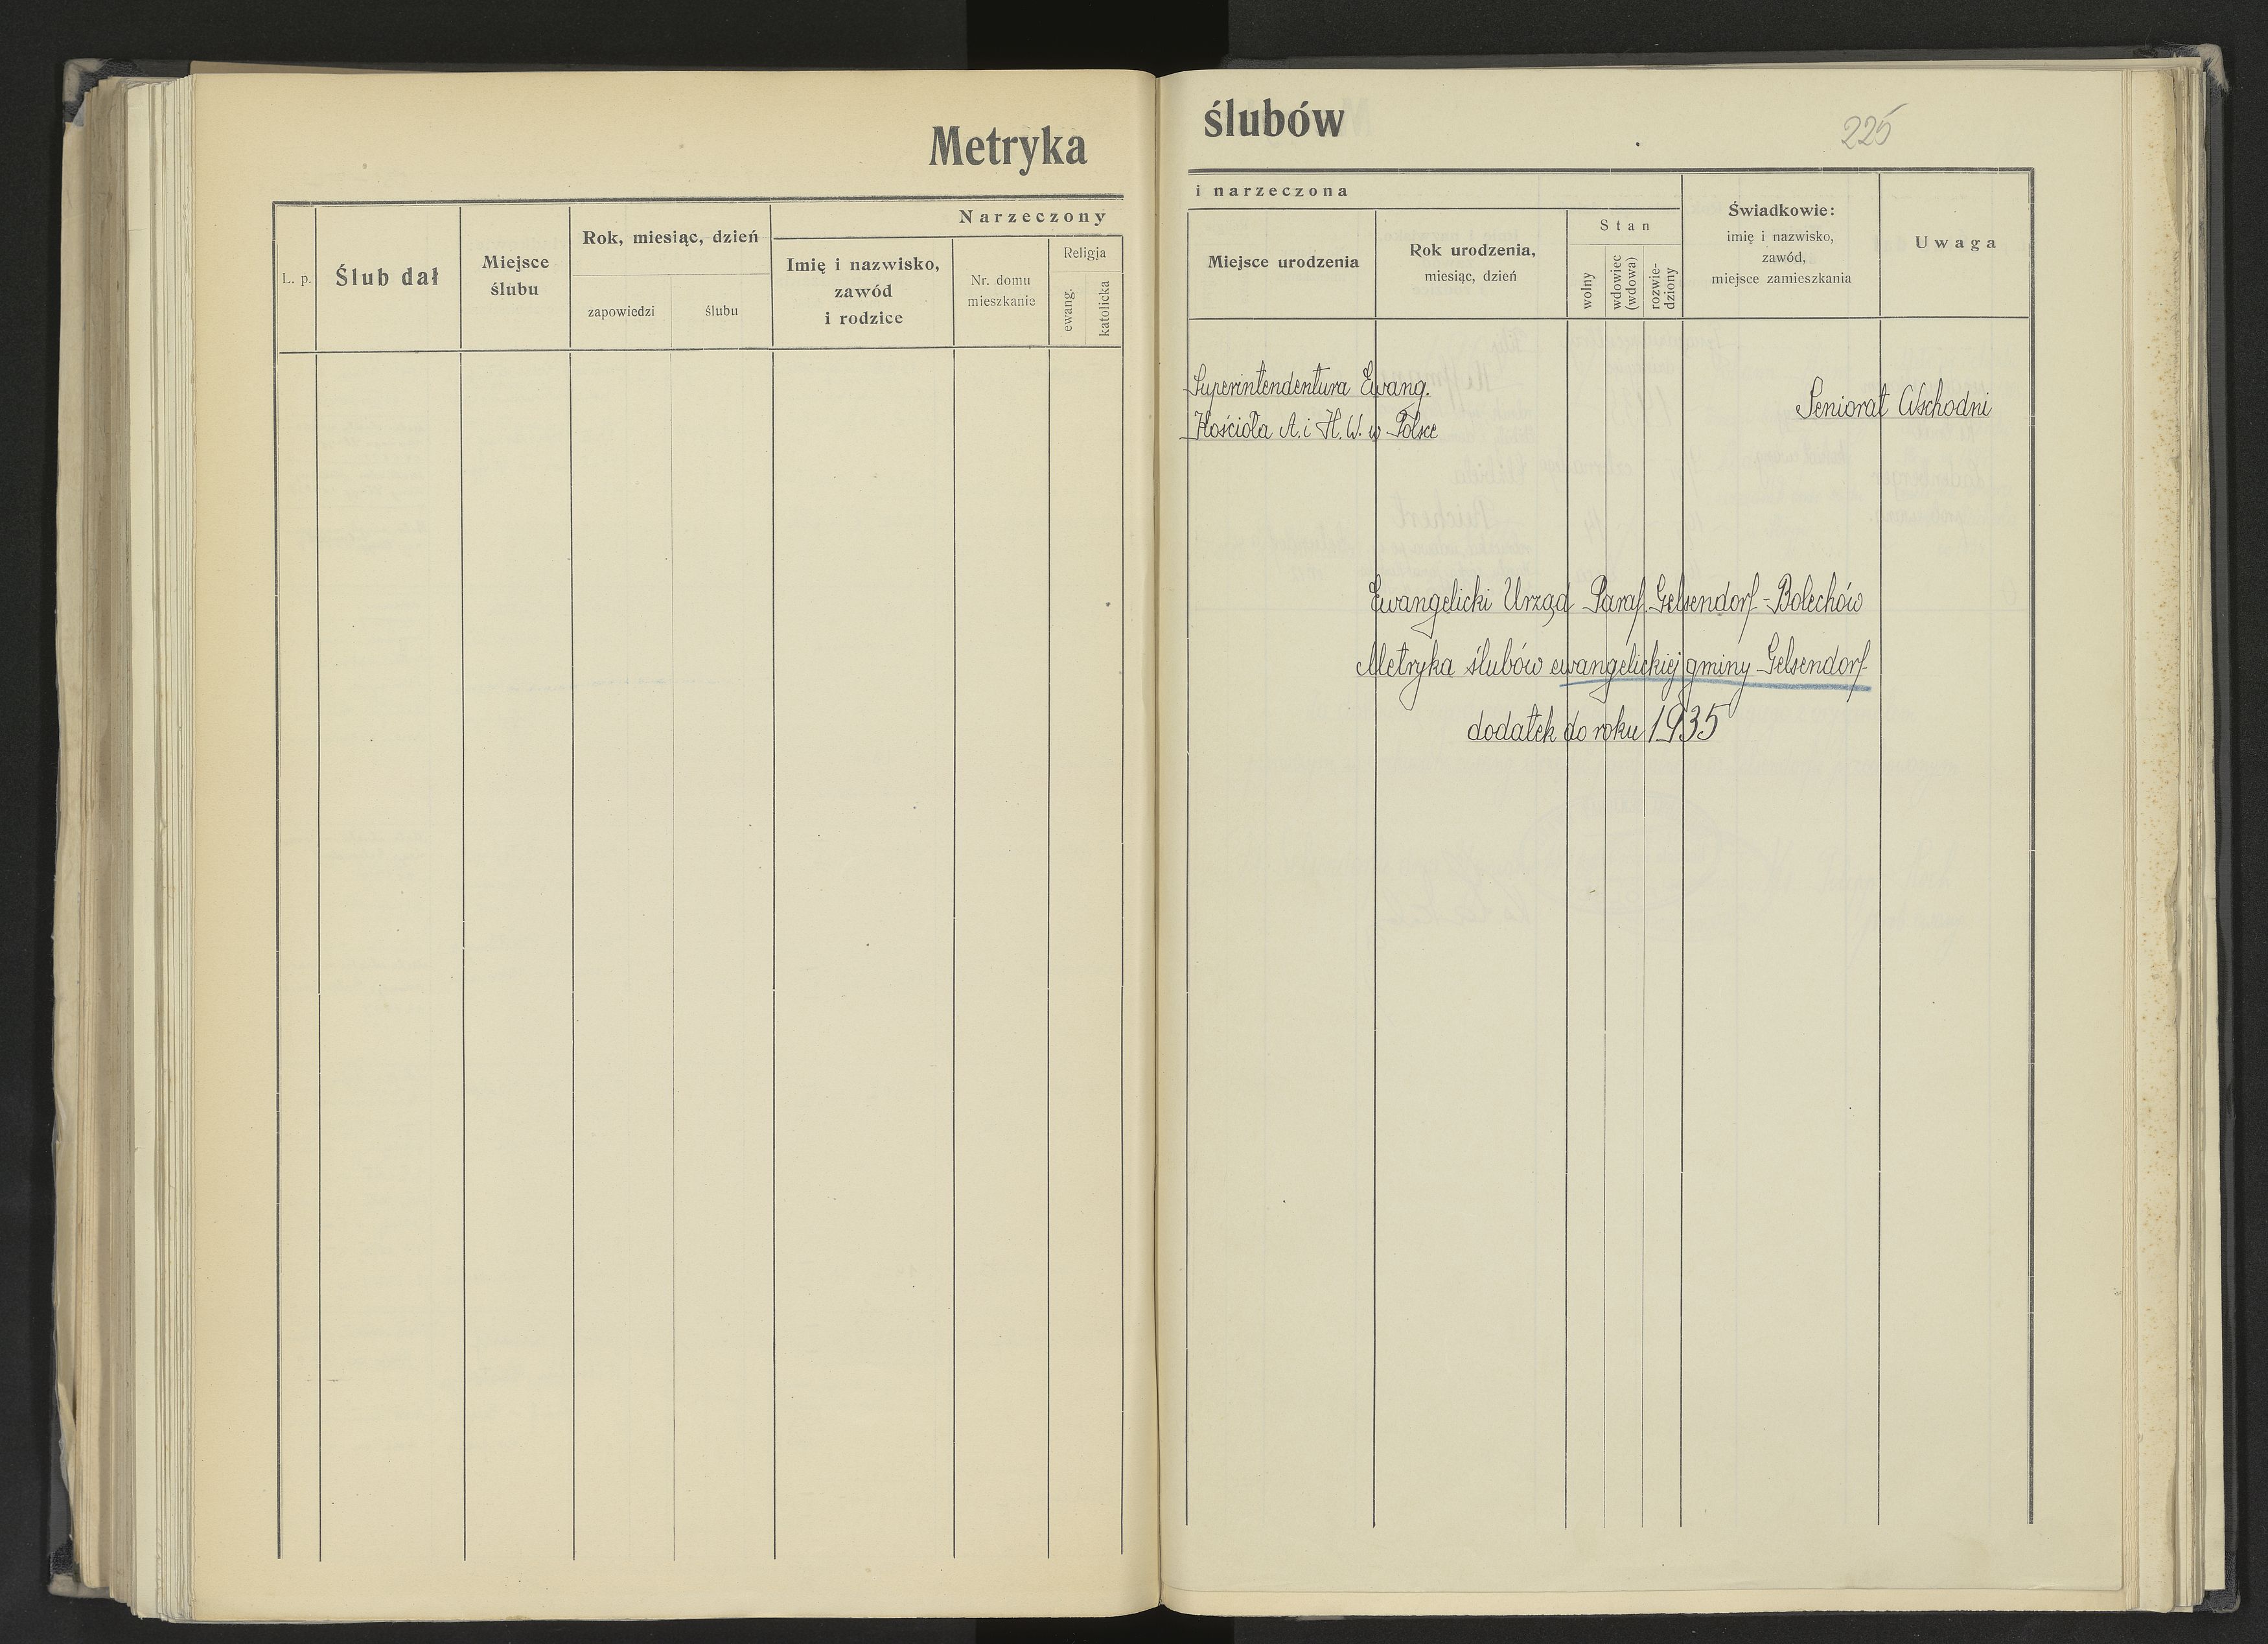 Metryka
L. p.
Ślub dał
Miejsce
ślubu
Rok, miesiąc, dzień
zapowiedzi
ślubu
Narzeczony
Imię i nazwisko,
zawód
i rodzice
Nr. domu
mieszkanie
Religja
ewang.
katolicka
ślubów
225
i narzeczona
Miejsce urodzenia
Rok urodzenia,
miesiąc, dzień
Stan
wolny
wdowiec
(wdowa)
rozwie-
dziony
Świadkowie:
imię i nazwisko,
zawód,
miejsce zamieszkania
Uwaga
Superintendentura Ewang.
Kościoła A. i H. W. w Polsce
Seniorat Wschodni
Ewangelicki Urząd Paraf. Gelsendorf-Bolechów
Metryka ślubów ewangelickiej gminy Gelsendorf
dodatek do roku 1935